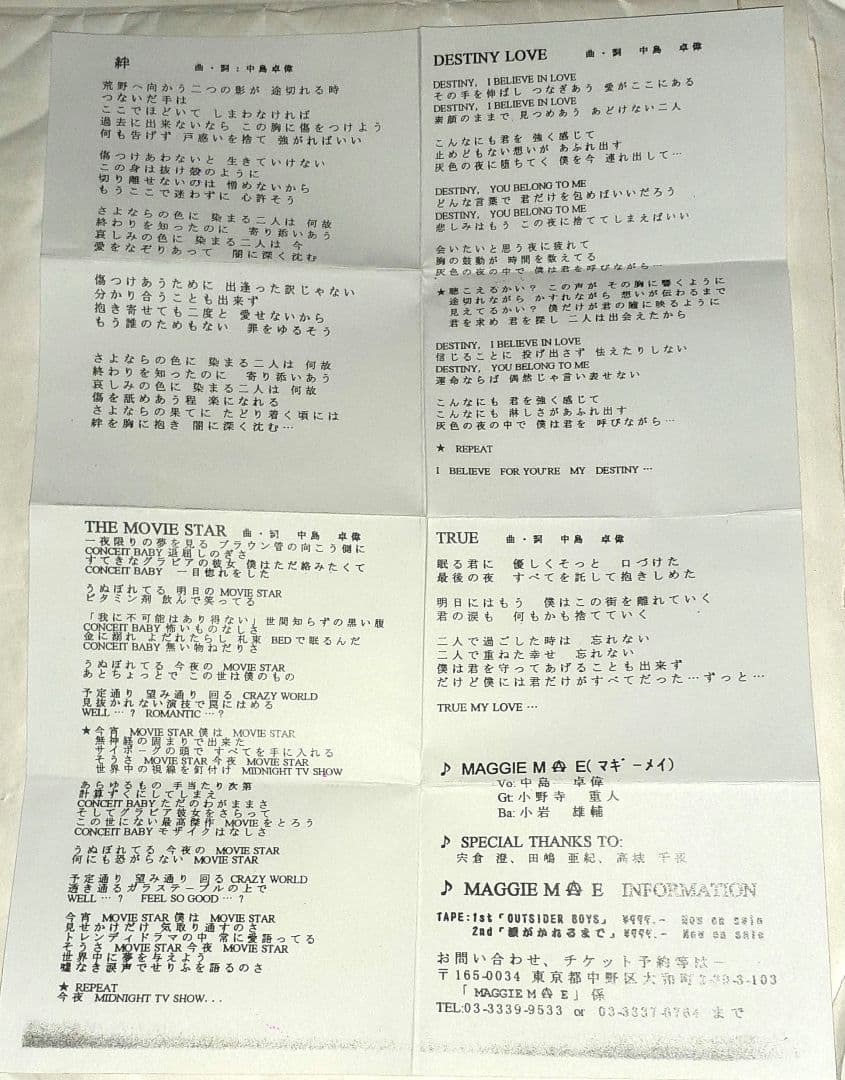 絆　曲・詞：中島卓偉
荒野へ向かう二つの影が 途切れる時
つないだ手は
ここでほどいて しまわなければ
過去に出来ないなら この胸に傷をつけよう
何も告げず 戸惑いを捨て 強がればいい
傷つけあわないと 生きていけない
この身は抜け殻のように
切り離せないのは 憎めないから
もうここで迷わずに 心許そう
さよならの色に 染まる二人は 何故
終わりを知ったのに 寄り添いあう
哀しみの色に 染まる二人は 今
愛をなぞりあって 闇に深く沈む
傷つけあうために 出逢った訳じゃない
分かり合うことも出来ず
抱き寄せても二度と 愛せないから
もう誰のためもない 罪をゆるそう
さよならの色に 染まる二人は 何故
終わりを知ったのに 寄り添いあう
哀しみの色に 染まる二人は 何故
傷を舐めあう程 楽になれる
さよならの果てに たどり着く頃には
絆を胸に抱き 闇に深く沈む…
THE MOVIE STAR　曲・詞 中島 卓偉
一夜限りの夢を見る ブラウン管の向こう側に
CONCEIT BABY 退屈しのぎさ
すてきなグラビアの彼女 僕はただ絡みたくて
CONCEIT BABY 一目惚れをした
うぬぼれてる 明日の MOVIE STAR
ビタミン剤 飲んで笑ってる
「我に不可能はあり得ない」世間知らずの黒い腹
CONCEIT BABY 怖いものなしさ
金に溺れ よだれたらし 札束 BEDで眠るんだ
CONCEIT BABY 無い物ねだりさ
うぬぼれてる 今夜の MOVIE STAR
あとちょっとで この世は僕のもの
予定通り 望み通り 回る CRAZY WORLD
見抜かれない演技で罠にはめる
WELL …？ ROMANTIC …？
★今宵 MOVIE STAR 僕は MOVIE STAR
無神経の固まりで出来た
サイボーグの頭で すべてを手に入れる
そうさ MOVIE STAR 今夜 MOVIE STAR
世界中の視線を釘付け MIDNIGHT TV SHOW
あらゆるもの 手当たり次第
計算ずくにしてしまえ
CONCEIT BABY ただのわがままさ
そしてグラビア彼女をさらって
この世にない最高傑作 MOVIEをとろう
CONCEIT BABY モザイクはなしさ
うぬぼれてる 今夜の MOVIE STAR
何にも恐がらない MOVIE STAR
予定通り 望み通り 回る CRAZY WORLD
透き通るガラステーブルの上で
WELL …？ FEEL SO GOOD …？
今宵 MOVIE STAR 僕は MOVIE STAR
見せかけだけ 気取り通すのさ
トレンディドラマの中 常に愛語ってる
そうさ MOVIE STAR 今夜 MOVIE STAR
世界中に夢を与えよう
嘘なき涙声でせりふを語るのさ
★ REPEAT
今夜 MIDNIGHT TV SHOW...
DESTINY LOVE　曲・詞 中島 卓偉
DESTINY, I BELIEVE IN LOVE
その手を伸ばし つなぎあう 愛がここにある
DESTINY, I BELIEVE IN LOVE
素顔のままで 見つめあう あどけない二人
こんなにも君を 強く感じて
止めどもない想いが あふれ出す
灰色の夜に堕ちてく 僕を今 連れ出して…
DESTINY, YOU BELONG TO ME
どんな言葉で 君だけを包めばいいだろう
DESTINY, YOU BELONG TO ME
悲しみはもう この夜に捨ててしまえばいい
会いたいと思う夜に疲れて
胸の鼓動が 時間を数えてる
灰色の夜の中で 僕は君を呼びながら…
★聴こえるかい？ この声が その胸に響くように
途切れながら かすれながら 想いが伝わるまで
見えてるかい？ 僕だけが君の瞳に映るように
君を求め 君を探し 二人は出会えたから
DESTINY, I BELIEVE IN LOVE
信じることに 投げ出さず 怯えたりしない
DESTINY, YOU BELONG TO ME
運命ならば 偶然じゃ言い表せない
こんなにも 君を強く感じて
こんなにも 淋しさがあふれ出す
灰色の夜の中で 僕は君を 呼びながら…
★ REPEAT
I BELIEVE FOR YOU'RE MY DESTINY …
TRUE　曲・詞 中島 卓偉
眠る君に 優しくそっと 口づけた
最後の夜 すべてを託して抱きしめた
明日にはもう 僕はこの街を離れていく
君の涙も 何もかも捨てていく
二人で過ごした時は 忘れない
二人で重ねた幸せ 忘れない
僕は君を守ってあげることも出来ず
だけど僕には君だけがすべてだった…ずっと…
TRUE MY LOVE …
♪ MAGGIE M A E(マギーメイ)
Vo:中島 卓偉
Gt:小野寺 重人
Ba:小岩 雄輔
♪ SPECIAL THANKS TO:
宍倉 澄、田嶋 亜紀、高城 千夜
♪ MAGGIE M A E INFORMATION
TAPE:1st「OUTSIDER BOYS」 ¥999.- Now on sale
2nd「眼がかれるまで」¥999.- Now on sale
お問い合わせ、チケット予約等は－
〒165-0034 東京都中野区大和町 -103
「MAGGIE M A E」係
TEL:03-3339-9533 or 03-3337-6764 まで